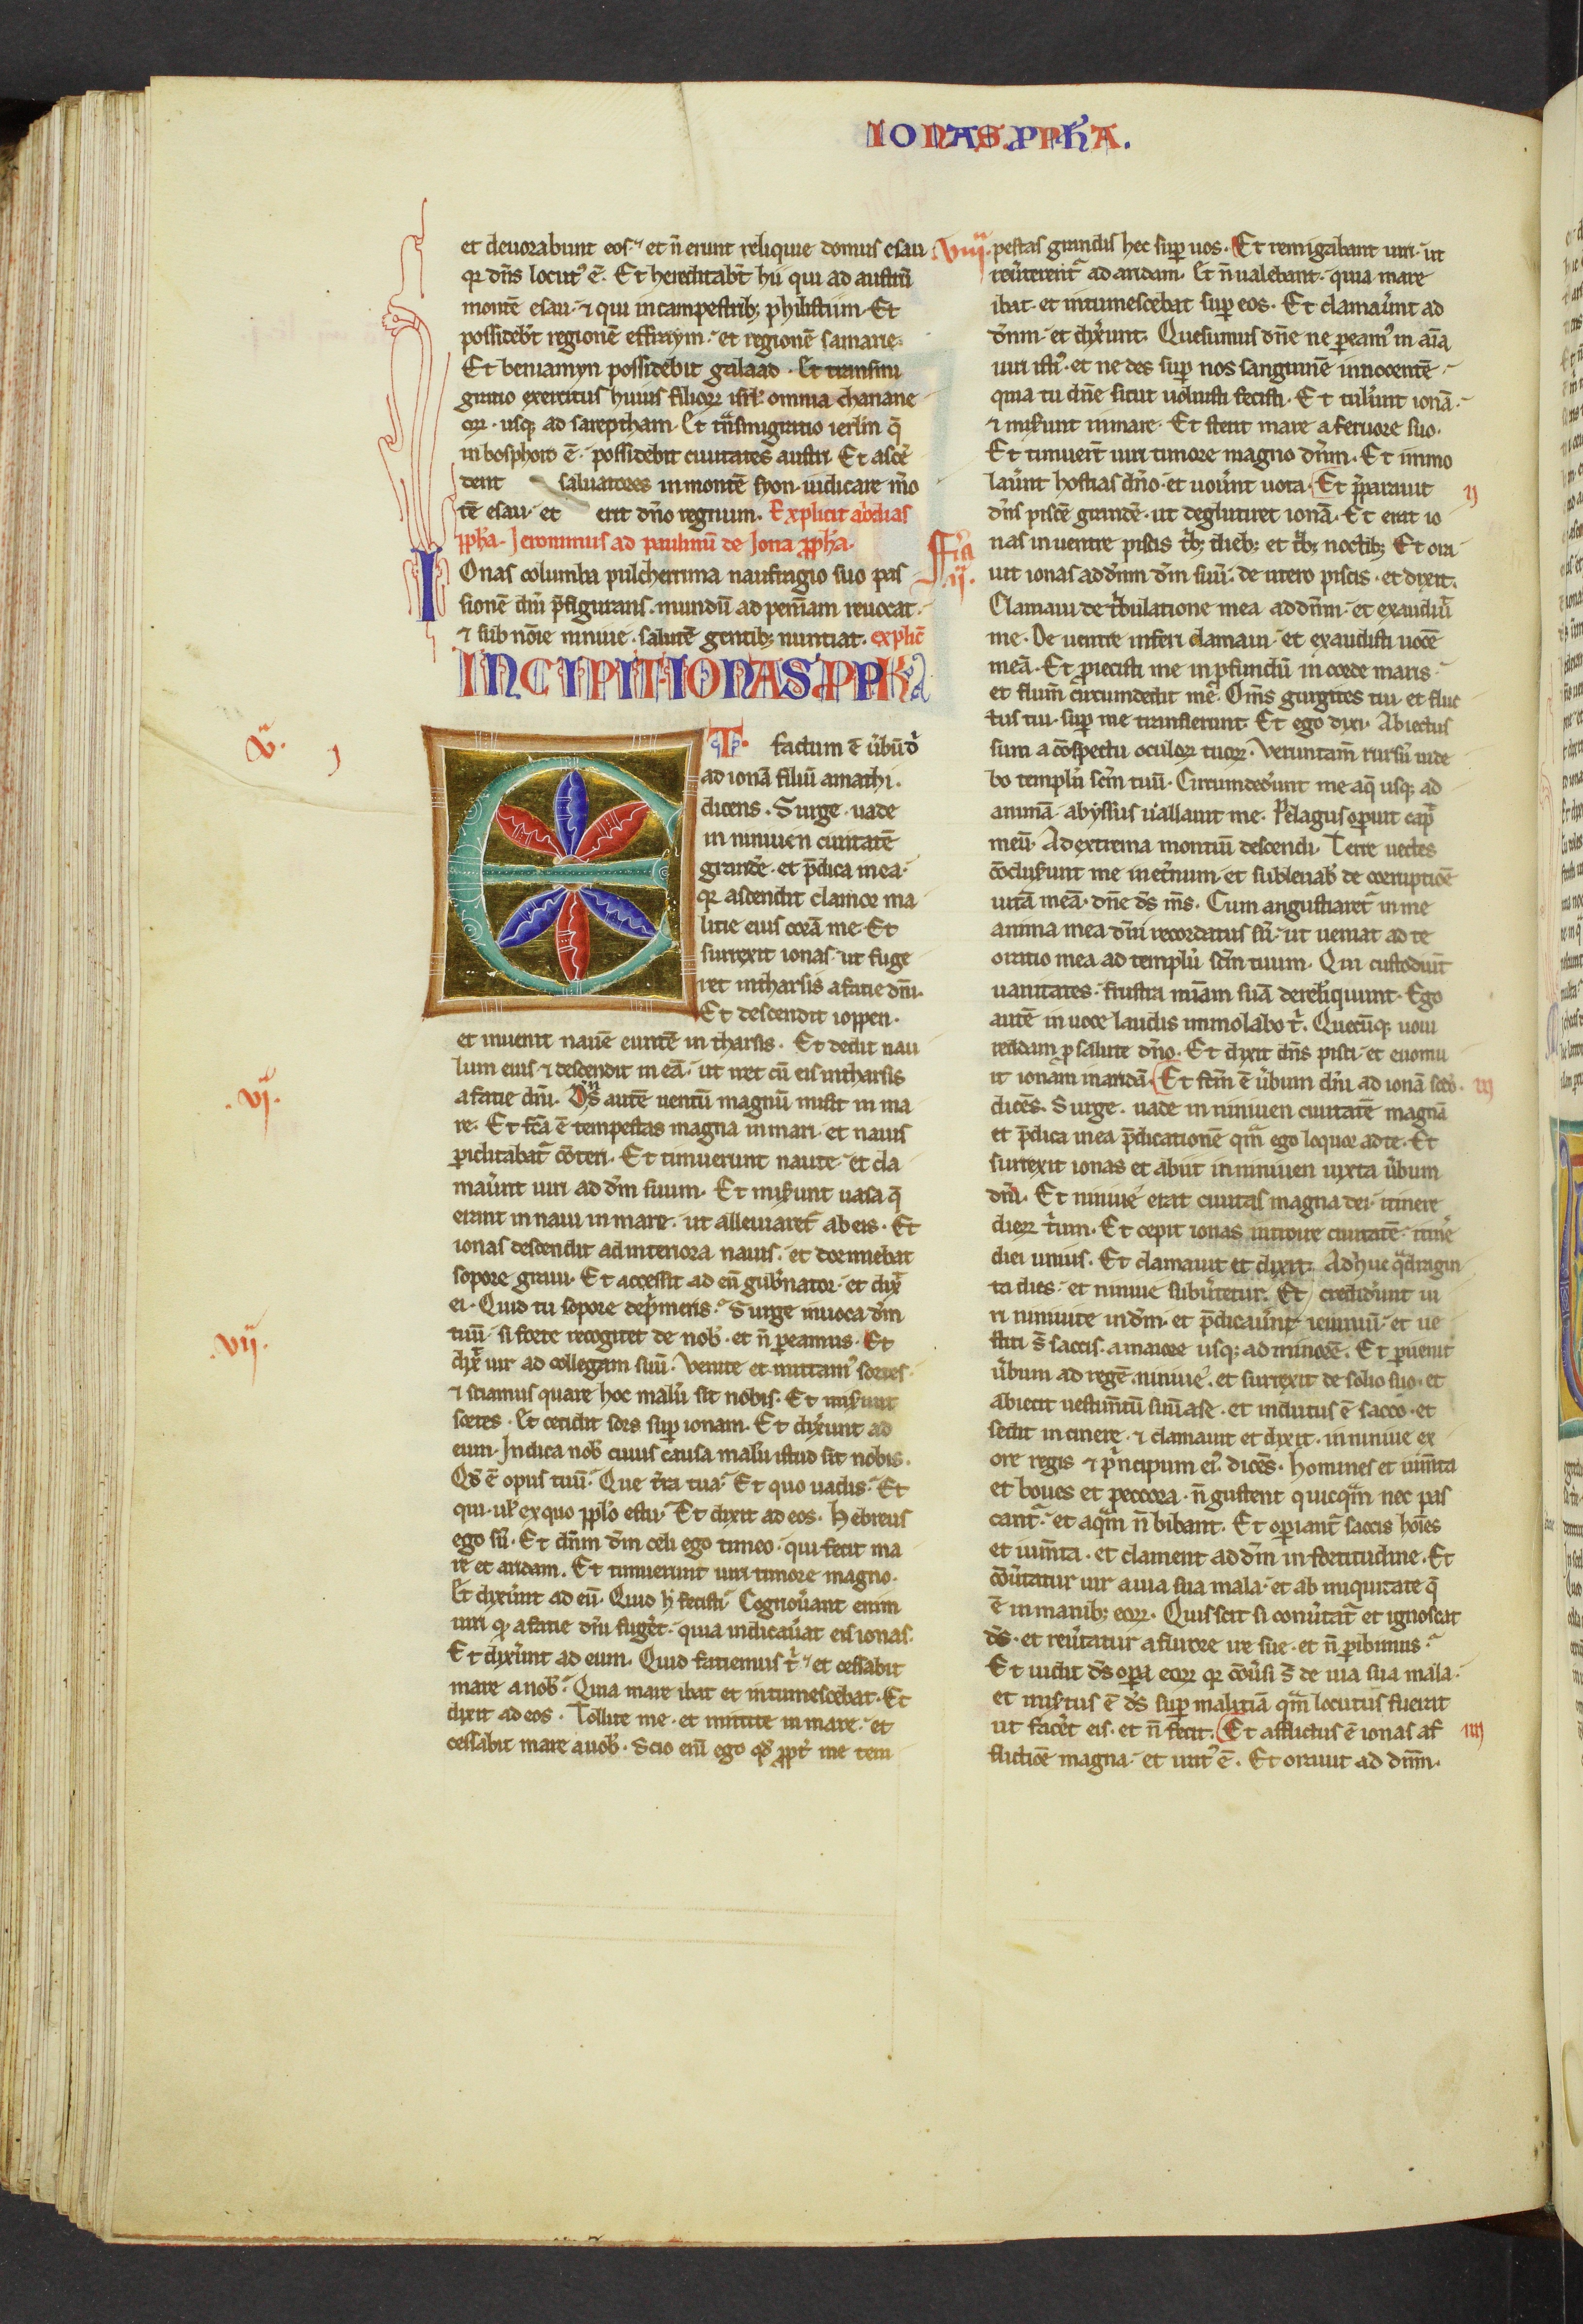 IONAS PPHA.
et deuorabunt eos. et n̄ erunt reliquie domus esau
qr dn̄s locutꝰ ē. Et hereditabt̄ hii qui ad austrū
montē esau. ⁊ qui in campestribꝫ philistiim. Et
possidebt̄ regionē effraym. et regionē samarie.
Et beniamyn possidebit galaad. Et transmi
gratio exercitus huius filioꝝ isrl̄. omnia chanane
oꝝ. usqꝫ ad sareptham. Et tͣnsmigratio ierl̄m q̄
in bosphoro ē. possidebit ciuitates austri. Et ascē
dent saluatores in montē syon. iudicare mō
tē esau. et erit dn̄o regnum. Explicit abdias
ꝓph̄a. Jeronimus ad paulinū de Iona ꝓph̄a.
IOnas columba pulcherrima naufragio suo pas
sionē dn̄i p̄figurans. mundū ad penitn̄am reuocat.
⁊ sub noīe niniue. salutē gentibꝫ nuntiat. explic̄
INCIPIT IONAS PPHA
.V. I
ET factum ē ūbū dn̄i
ad ionā filiū amathi.
dicens. Surge. uade
in niniuen ciuitatē
grandē. et p̄dica in ea.
qr ascendit clamor ma
litie eius corā me. Et
surrexit ionas. ut fuge
ret in tharsis a facie dn̄i.
Et descendit ioppen.
et inuenit nauē euntē in tharsis. Et dedit nau
lum eius. ⁊ descendit in eā. ut iret cū eis in tharsis
.VI.
a facie dn̄i. Dn̄s autē uentū magnū misit in ma
re. Et fcā ē tempestas magna in mari. et nauis
ꝑiclitabatͬ cōteri. Et timuerunt naute. et cla
maūnt uiri ad dm̄ suum. Et mis̄unt uasa q̄
erant in naui in mare. ut alleuiaretͬ ab eis. Et
ionas descendit ad interiora nauis. et dormiebat
sopore graui. Et accessit ad eū gub̄nator. et dix̄
ei. Quid tu sopore dep̄meris. Surge inuoca dm̄
tuū. si forte recogitet de nob̄. et n̄ ꝑeamus. Et
.VII.
dix̄ uir ad collegam suū. Venite et mittamꝰ sortes.
⁊ sciamus quare hoc malū sit nobis. Et mis̄unt
sortes. Et cecidit sors suꝑ ionam. Et dix̄unt ad
eum. Indica nob̄ cuius causa malū istud sit nobis.
Qd̄ ē opus tuū. Que tr̄a tua. Et quo uadis. Et
qui. ul̄ ex quo pplo es tu. Et dixit ad eos. Hebreus
ego sū. Et dn̄m dm̄ celi ego timeo. qui fecit ma
re et aridam. Et timuerunt uiri timore magno.
Et dix̄unt ad eū. Quid h̄ fecisti. Cognoūant enim
uiri qd̄ a facie dn̄i fuḡet. quia indicaūat eis ionas.
Et dix̄unt ad eum. Quid faciemus tͥ. et cessabit
mare a nob̄. Quia mare ibat et intumescebat. Et
dixit ad eos. Tollite me. et mittite in mare. et
cessabit mare a uob̄. Scio enī ego qd̄ ꝓpt̄ me tem
.VIII.
pestas grandis hec suꝑ uos. Et remigabant uiri. ut
reūterentͬ ad aridam. Et n̄ ualebant. quia mare
ibat. et intumescebat suꝑ eos. Et clamaūnt ad
dn̄m. et dix̄unt. Quesumus dn̄e ne ꝑeamꝰ in aīa
uiri istiꝰ. et ne des suꝑ nos sanguinē innocentē.
quia tu dn̄e sicut uoluisti fecisti. Et tul̄unt ionā.
⁊ mis̄unt in mare. Et stetit mare a feruore suo.
Et timuert̄ uiri timore magno dn̄m. Et immo
laūnt hostias dn̄o. et uoūnt uota. Et p̄parauit
II
dn̄s piscē grandē. ut deglutiret ionā. Et erat io
nas in uentre piscis tb̄ꝫ diebꝫ et tb̄ꝫ noctibꝫ. Et ora
uit ionas ad dn̄m dm̄ suū. de utero piscis. et dixit.
Clamaui de tͥbulatione mea ad dn̄m. et exaudiuit
me. De uentre inferi clamaui. et exaudisti uocē
meā. Et ꝓiecisti me in ꝓfundū in corde maris.
et flum̄ circumdedit me. Om̄s gurgites tui. et fluc
tus tui. suꝑ me transierunt. Et ego dixi. Abiectus
sum a cōspectu oculoꝝ tuoꝝ. Verumtam̄ rursū uide
bo templū scm̄ tuū. Circumdedūnt me aq̄ usqꝫ ad
animā. abyssus uallauit me. Pelagus oꝑuit cap̄
meū. Ad extrema montiū descendi. Terre uectes
cōclus̄unt me in et̄num. et subleuab̄ de corruptiōe
uitā meā. dn̄e ds̄ ms̄. Cum angustiaretͬ in me
anima mea. dn̄i recordatus sū. ut ueniat ad te
oratio mea ad templū scm̄ tuum. Qui custodiūt
uanitates. frustra mīam suā derelinquunt. Ego
autē in uoce laudis immolabo tͥ. Quecūqꝫ uoui
reddam ꝓ salute dn̄o. Et dixit dn̄s pisci. et euomu
it ionam in aridā. Et fcm̄ ē ūbum dn̄i ad ionā scdo.
III
dicēs. Surge. uade in niniuen ciuitatē magnā
et p̄dica in ea p̄dicationē qm̄ ego loquor ad te. Et
surrexit ionas et abiit in niniuen iuxta ūbum
dn̄i. Et niniue erat ciuitas magna dei. itinere
dieꝝ tͥum. Et cepit ionas introire ciuitatē. itinē
diei unius. Et clamauit et dixit. Adhuc qͣdragin
ta dies. et niniue subūtetur. Et credidūnt ui
ri niniuite in dm̄. et p̄dicaūnt ieiuniū. et ue
stiti s̄ saccis. a maiore usqꝫ ad minorē. Et ꝑuenit
ūbum ad regē niniue. et surrexit de solio suo. et
abiecit uestim̄tū suū a se. et indutus ē sacco. et
sedit in cinere. ⁊ clamauit et dixit. in niniue ex
ore regis ⁊ pͥncipum eiꝰ. dicēs. Homines et ium̄ta
et boues et peccora. n̄ gustent quicqͣm nec pas
cantͬ. et aqͣm n̄ bibant. Et oꝑiantͬ saccis hoīes
et ium̄ta. et clament ad dm̄ in fortitudine. Et
cōūtatur uir a uia sua mala. et ab iniquitate q̄
ē in manibꝫ eoꝝ. Quis scit si conūtatͬ et ignoscat
ds̄. et reūtatur a furore ire sue. et n̄ ꝑibimus.
Et uidit ds̄ oꝑa eoꝝ qr cōūsi s̄ de uia sua mala.
et mis̄tus ē ds̄ suꝑ malitiā qͣm locutus fuerat
ut fac̄et eis. et n̄ fecit. Et afflictus ē ionas af
IIII
flictiōe magna. et iratꝰ ē. Et orauit ad dn̄m.